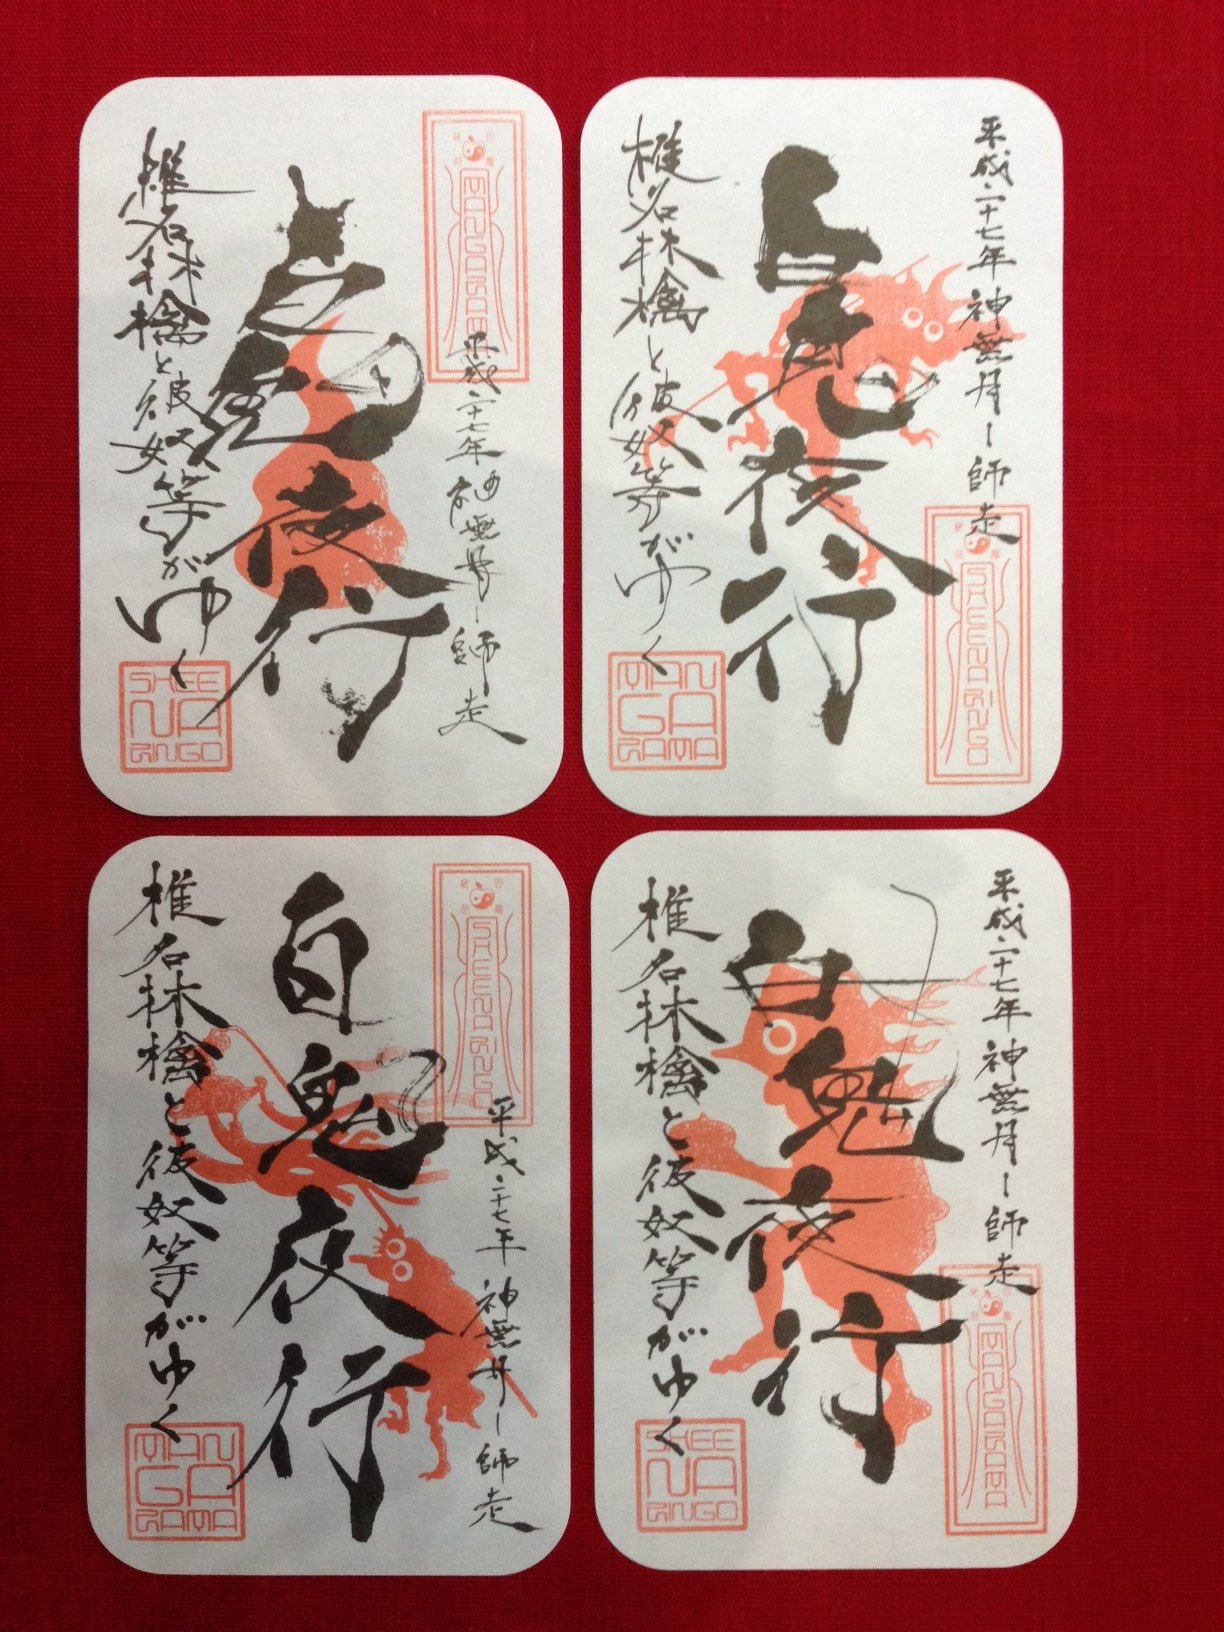 MANGARAMA
平成二十七年神無月ー師走
百鬼夜行
椎名林檎と彼奴等がゆく
SHEE
NA
RINGO
平成二十七年神無月ー師走
SHEENA RINGO
百鬼夜行
椎名林檎と彼奴等がゆく
MAN
GA
RAMA
SHEENA RINGO
平成二十七年神無月ー師走
百鬼夜行
椎名林檎と彼奴等がゆく
MAN
GA
RAMA
平成二十七年神無月ー師走
MANGARAMA
百鬼夜行
椎名林檎と彼奴等がゆく
SHEE
NA
RINGO